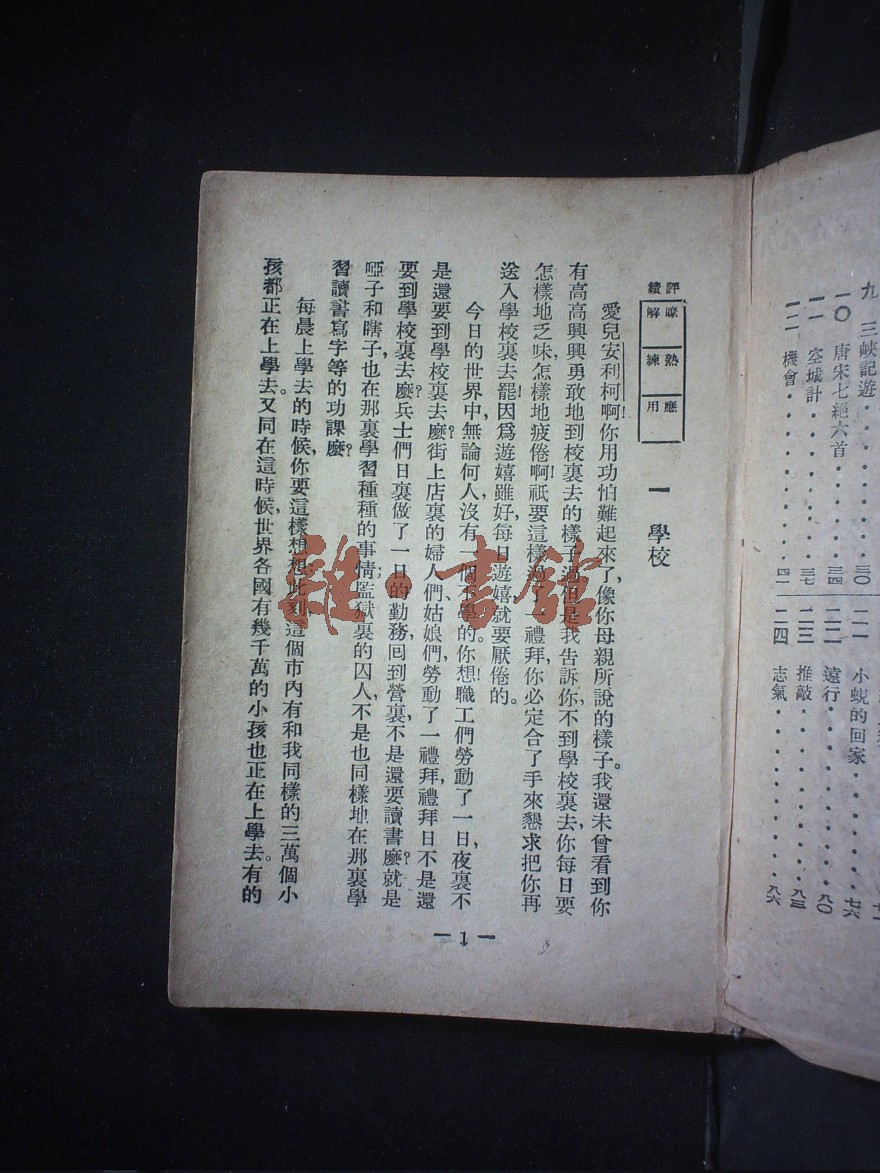 九 三峽記遊・・・・・・三〇
一〇 唐宋七絕六首・・・三四
一一 空城計・・・・・・三七
一二 機會・・・・・・・四一
二一 小蜆的回家・・・・・・七六
二二 遠行・・・・・・・・・八〇
二三 推敲・・・・・・・・・八三
二四 志氣・・・・・・・・・八六
評績
嘹解
熟練
應用
一 學校
愛兒安利柯啊!你用功怕難起來了,像你母親所說的樣子。我還未曾看到你
有高高興興勇敢地到校裏去的樣子過。但是我告訴你,不到學校裏去,你每日要
怎樣地乏味,怎樣地疲倦啊!祇要這樣過了一禮拜,你必定合了手來懇求把你再
送入學校裏去罷!因爲遊嬉雖好,每日遊嬉,就要厭倦的。
今日的世界中,無論何人,沒有一個不學的。你想!職工們勞動了一日,夜裏不
是還要到學校裏去麼?街上店裏的婦人們姑娘們,勞動了一禮拜,禮拜日不是還
要到學校裏去麼?兵士們日裏做了一日的勤務,囘到營裏,不是還要讀書麼?就是
啞子和瞎子,也在那裏學習種種的事情;監獄裏的囚人,不是也同樣地在那裏學
習讀書寫字等的功課麼?
每晨上學去的時候,你要這樣想想:此刻這個市內有和我同樣的三萬個小
孩都正在上學去。又同在這時候,世界各國有幾千萬的小孩也正在上學去。有的
—1—
雜·書館